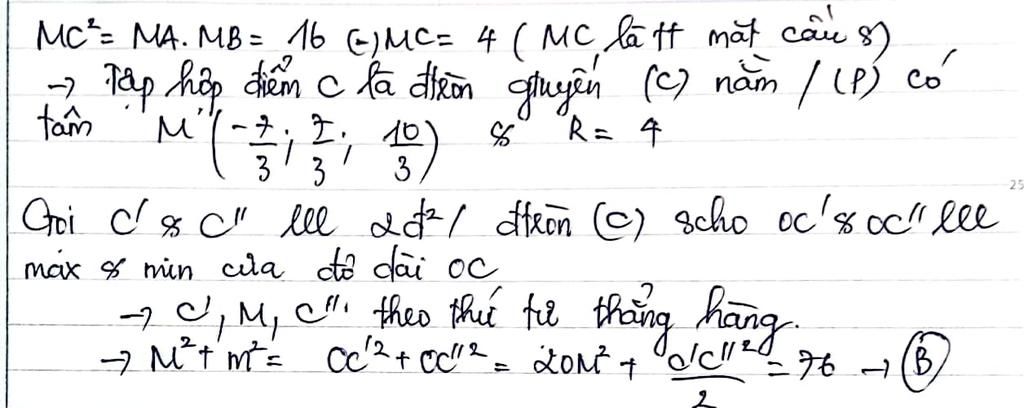 MC² = MA. MB = 16 (-) MC = 4 ( MC là tt mặt cầu &)
→ Tập hợp điểm C là đtròn gluyến (C) nằm / (P) có
tâm M (-7/3; 7/3; 10/3) & R = 4
25
Gọi C' & C'' lll 2đ² / đtròn (C) scho OC' & OC'' lll
max & min của độ dài OC
→ C', M, C'' theo thứ tự thẳng hàng.
→ M² + m² = OC'² + OC''² = 2OM² + C'C''²/2 = 76 → (B)